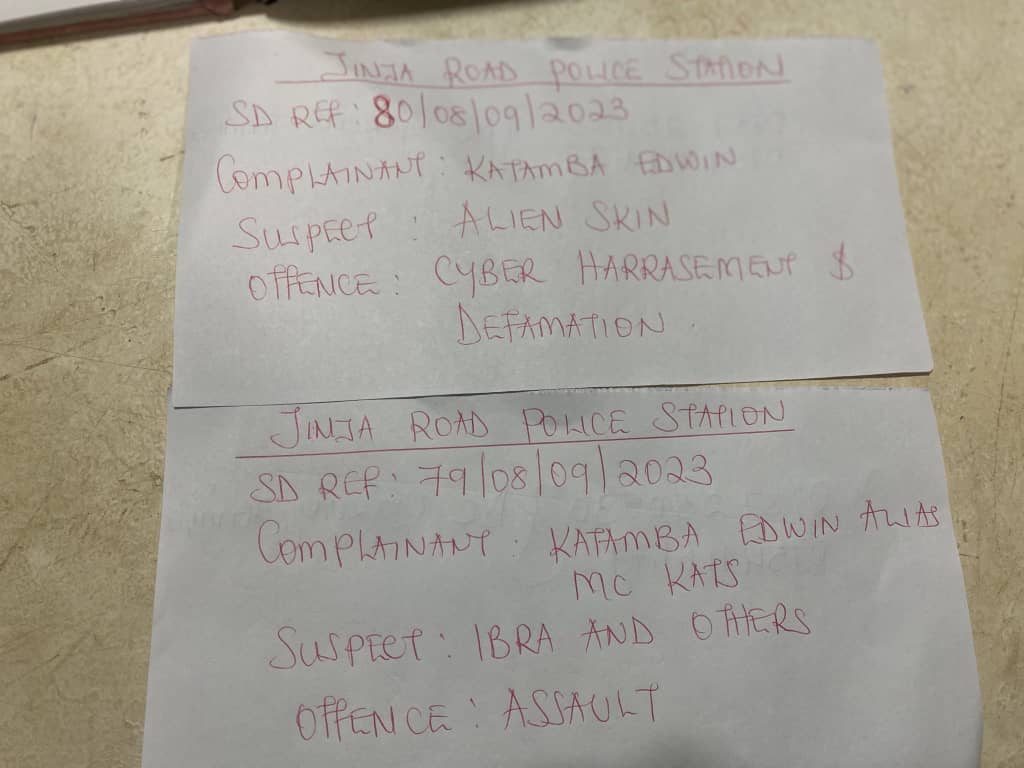 JINJA ROAD POLICE STATION
SD REF: 80/08/09/2023
COMPLAINANT: KATAMBA EDWIN
SUSPECT : ALIEN SKIN
OFFENCE: CYBER HARRASEMENT $
DEFAMATION.
JINJA ROAD POLICE STATION
SD REF: 79/08/09/2023
COMPLAINANT: KATAMBA EDWIN ALIAS
MC KATS
SUSPECT: IBRA AND OTHERS
OFFENCE: ASSAULT